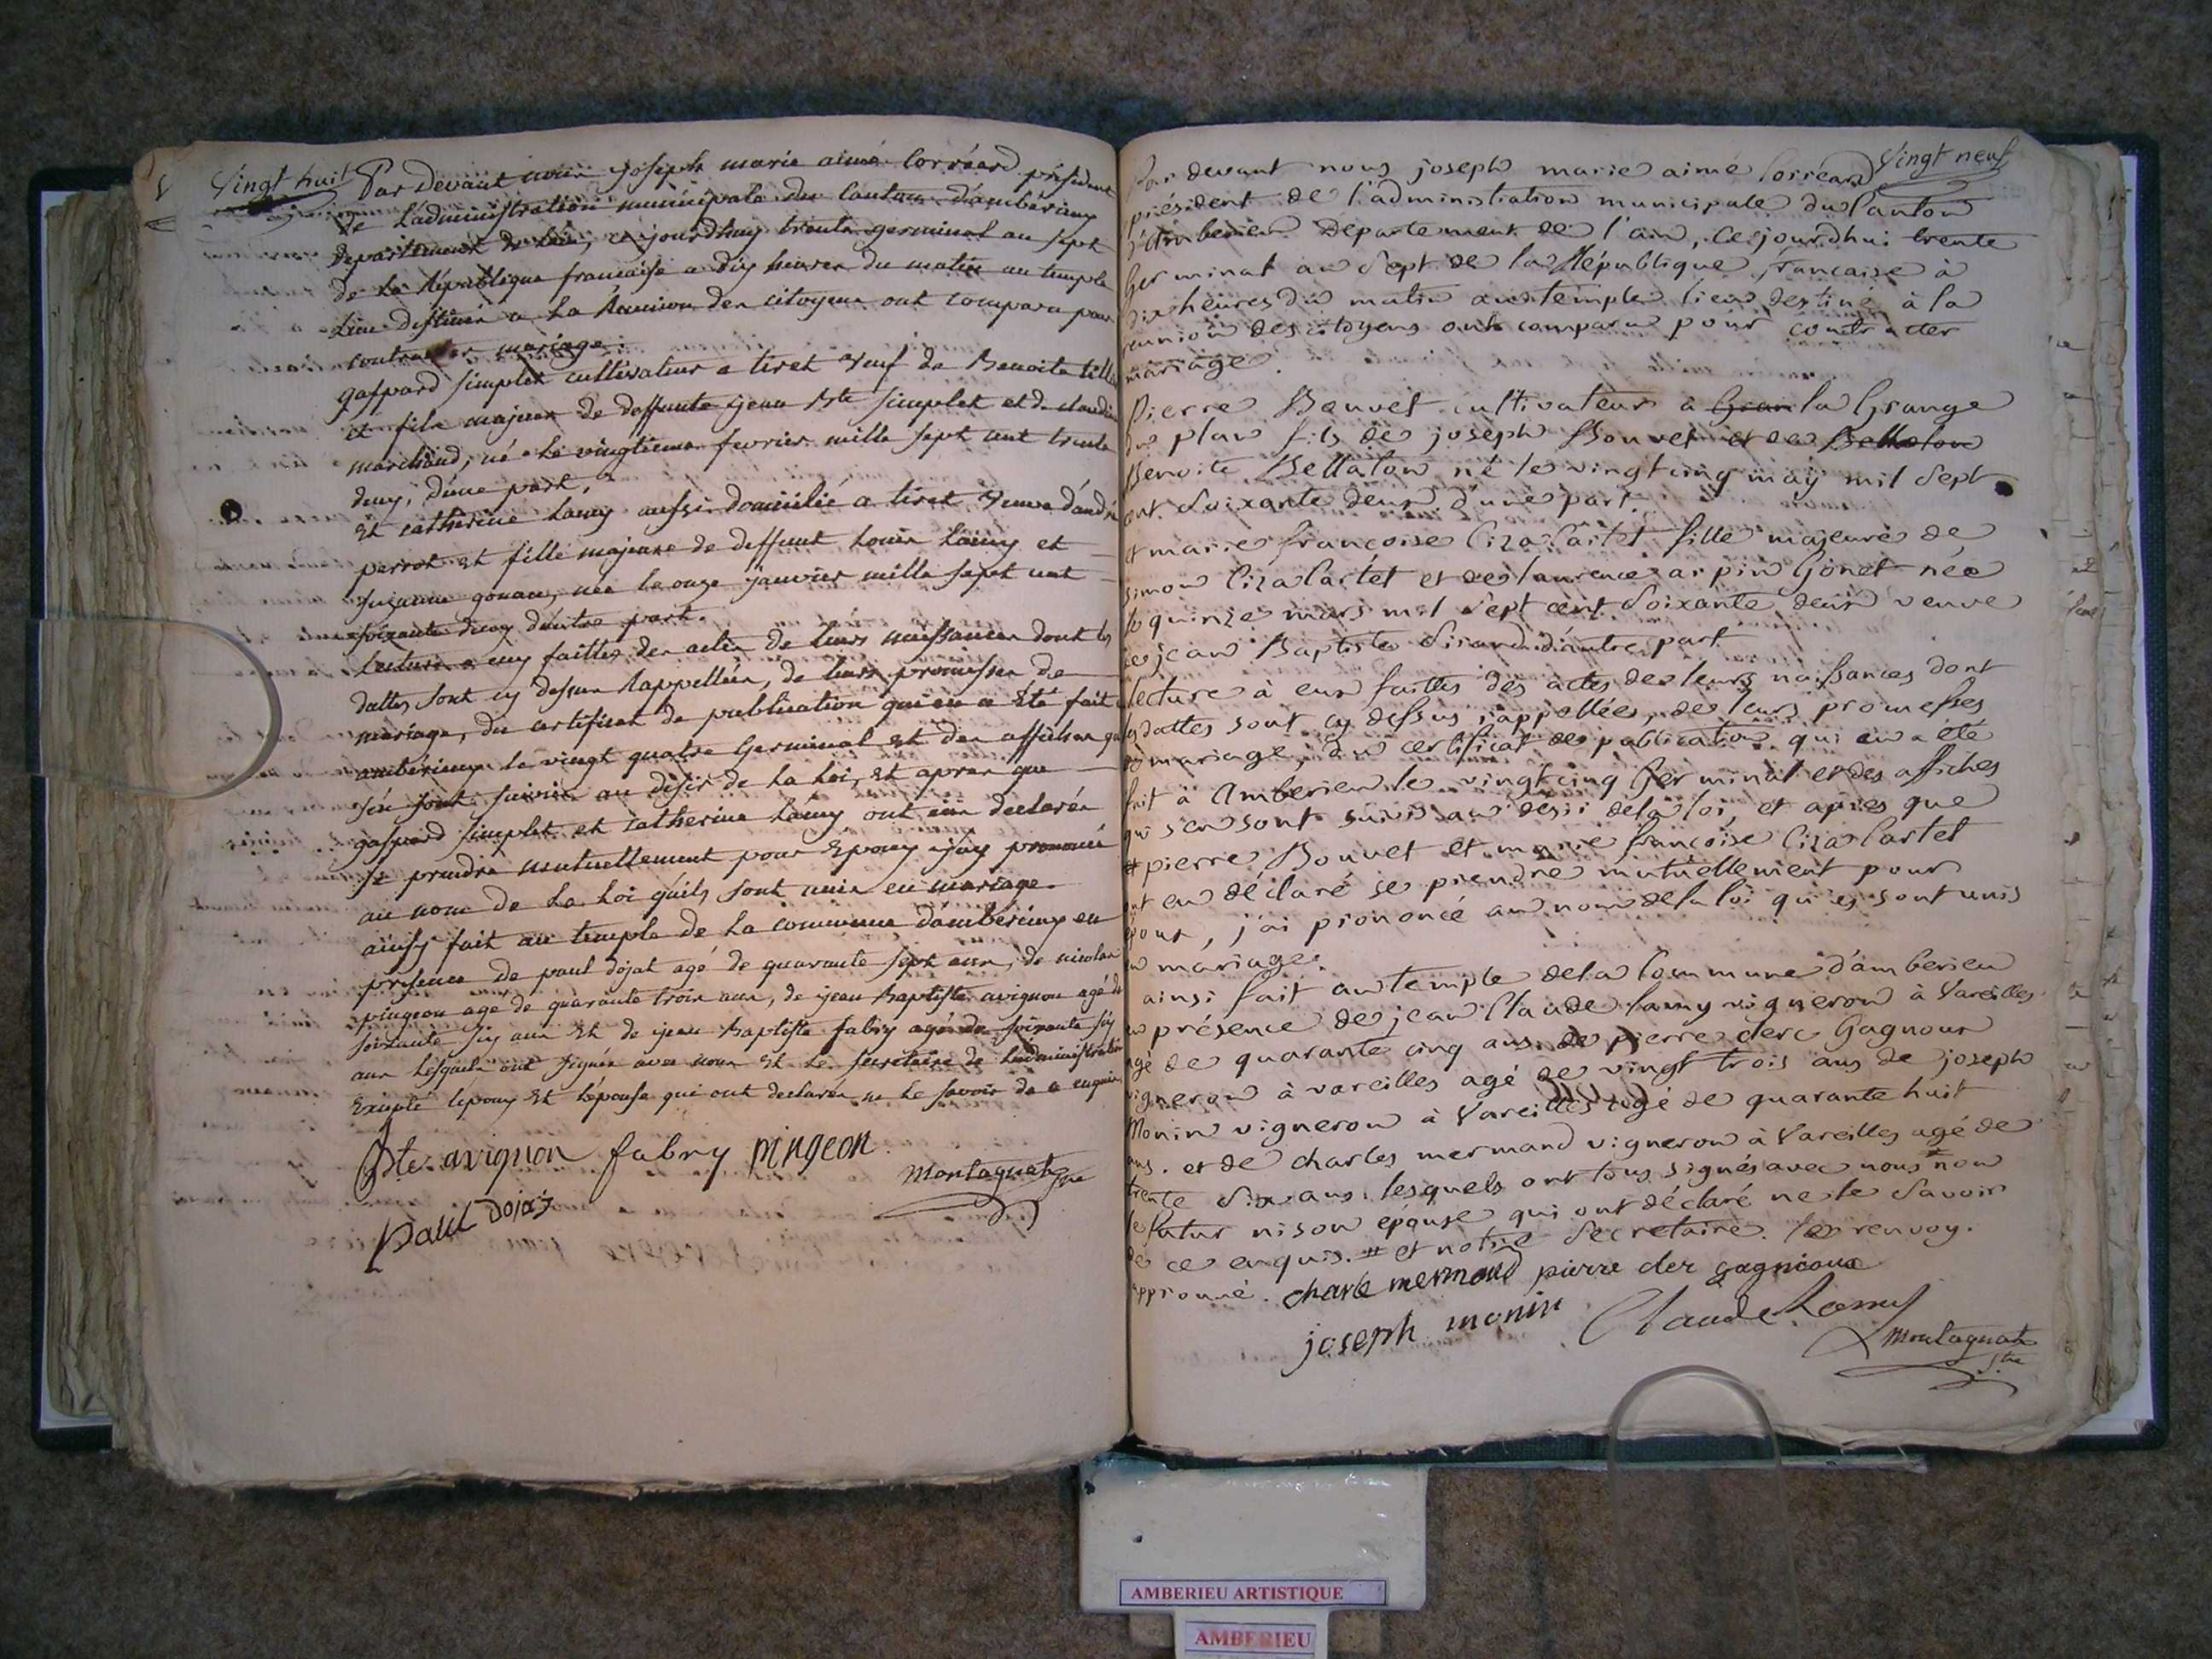 Vingt huit
Par devant nous joseph marie aimé Corréard président
de Ladministration municipale du Canton d'ambérieux
departement de l'ain, cejourdhuy trente germinal an sept
de La République francaise a dix heures du matin au temple
Lieu destinée a La Réunion des citoyens ont comparu pour
contracter mariage.
gaspard simplet cultivateur a tiret veuf de Benoite
et fils majeur de deffunte jean Bte simplet et de claudine
marchand, né le vingtieme fevrier mille sept cent trente
deux, d'une part.
Et catherine Lamy aussi domicilié a tiret veuve d'andré
perrot et fille majeure de deffunt Louis Lamy et
suzanne gonan, née le onze janvier mille sept cent
soixante deux d'autre part.
Lecture a eux faittes des actes de leurs naissances dont les
dattes sont cy dessus Rappellées, de leurs promesses de
mariage, du certificat de publication qui en a été fait a
ambérieux le vingt quatre Germinal et des affiches qui
s'en sont suivies au désir de La Loi, et apres que
gaspard simplet et Catherine Lamy ont eu declarés
se prendre mutuellement pour Epoux j'ay prononcé
au nom de La Loi qu'ils sont unis en mariage.
ainsy fait au temple de La commune d'ambérieux en
presence de paul dojat agé de quarante sept ans, de nicolas
pingeon agé de quarante trois ans, de jean Baptiste avignon agé de
soixante six ans et de jean Baptiste fabry agé de soixante six
ans Lesquels ont signés avec nous et Le secretaire de Ladministration
Excepté lepoux et Lépouse qui ont declarés ne Le savoir de ce enquis
Bte avignon fabry pingeon
Montagnat Sre
paul Dojat
Vingt neuf
Par devant nous joseph marie aimé Corréard
président de l'administration municipale du Canton
d'Amberieu Département de l'ain, cejourdhui trente
Germinal an sept de la République francaise à
dix heures du matin au temple lieu destiné à la
reunion des citoyens ont comparu pour contracter
mariage.
Pierre Bouvet cultivateur à Gran la Grange
du plan fils de joseph Bouvet et de Bellaton
Benoite Bellaton né le vingt cinq may mil sept
cent soixante deux d'une part.
et marie françoise Ciza Cartet fille majeure de
simon Ciza Cartet et de laurence arpin Gonet née
le quinze mars mil sept cent soixante deux veuve
de jean Baptiste Sirand d'autre part
lecture à eux faittes des actes de leurs naissances dont
les dattes sont cy dessus rappellées, de leurs promesses
de mariage, du certificat de publication qui en a été
fait à Amberieu le vingt cinq Germinal et des affiches
qui s'en sont suivis au desir de la loi, et après que
# pierre Bouvet et marie françoise Ciza Cartet
ont eu déclaré se prendre mutuellement pour
époux, j'ai prononcé au nom de la loi qu'es sont unis
en mariage.
ainsi fait au temple de la Commune d'amberieu
en présence de jean Claude lamy vigneron à Vareilles
agé de quarante cinq ans de pierre derc Gagnoux
vigneron à vareilles agé de vingt trois ans de joseph
Monin vigneron à Vareilles agé de quarante huit
ans. et de charles mermand vigneron à Vareilles agé de
trente six ans. lesquels ont tous signés avec nous # non
le futur ni son épouse qui ont déclaré ne le savoir
de ce enquis. # et notre Secretaire. les renvoy.
approuvé. charle mermand pierre der gagnioux
joseph monin Claude Lamy
Montagnat
Sre
AMBERIEU ARTISTIQUE
AMBERIEU